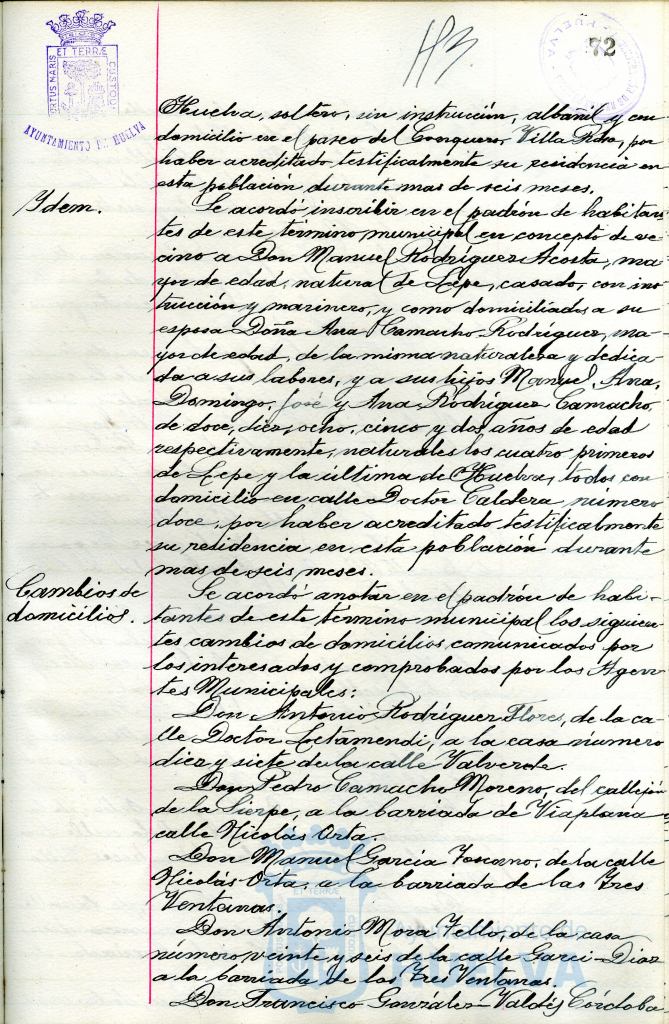 113.
72
PORTUS MARIS ET TERRÆ CUSTODIA
AYUNTAMIENTO DE HUELVA
Huelva, soltero, sin instrucción, albañil y con
domicilio en el paseo del Conquero, Villa Rosa, por
haber acreditado testificalmente su residencia en
esta población durante mas de seis meses.
Ydem.
Se acordó inscribir en el padrón de habitan-
tes de este término municipal en concepto de ve-
cino a Don Manuel Rodríguez Acosta, ma-
yor de edad, natural de Lepe, casado, con ins-
trucción y marinero, y como domiciliados a su
esposa Doña Ana Camacho Rodríguez, ma-
yor de edad, de la misma naturaleza y dedica-
da a sus labores, y a sus hijos Manuel, Ana,
Domingo, José y Ana Rodríguez Camacho,
de doce, diez, ocho, cinco y dos años de edad
respectivamente, naturales los cuatro primeros
de Lepe y la última de Huelva, todos con
domicilio en calle Doctor Caldera, número
doce, por haber acreditado testificalmente
su residencia en esta población durante
mas de seis meses.
Cambios de
domicilios.
Se acordó anotar en el padrón de habi-
tantes de este término municipal los siguien-
tes cambios de domicilios comunicados por
los interesados y comprobados por los Agen-
tes Municipales:
Don Antonio Rodríguez Flores, de la ca-
lle Doctor Letamendi, a la casa número
diez y siete de la calle Valverde.
Don Pedro Camacho Moreno, del callejón
de la Sierpe, a la barriada de Viaplana
calle Nicolás Orta.
Don Manuel García Toscano, de la calle
Nicolás Orta, a la barriada de las Tres
Ventanas.
Don Antonio Mora Tello, de la casa
número veinte y seis de la calle Garci-Diaz
a la barriada de las Tres Ventanas.
Don Francisco González-Valdés Córdoba
Ayuntamiento de
HUELVA